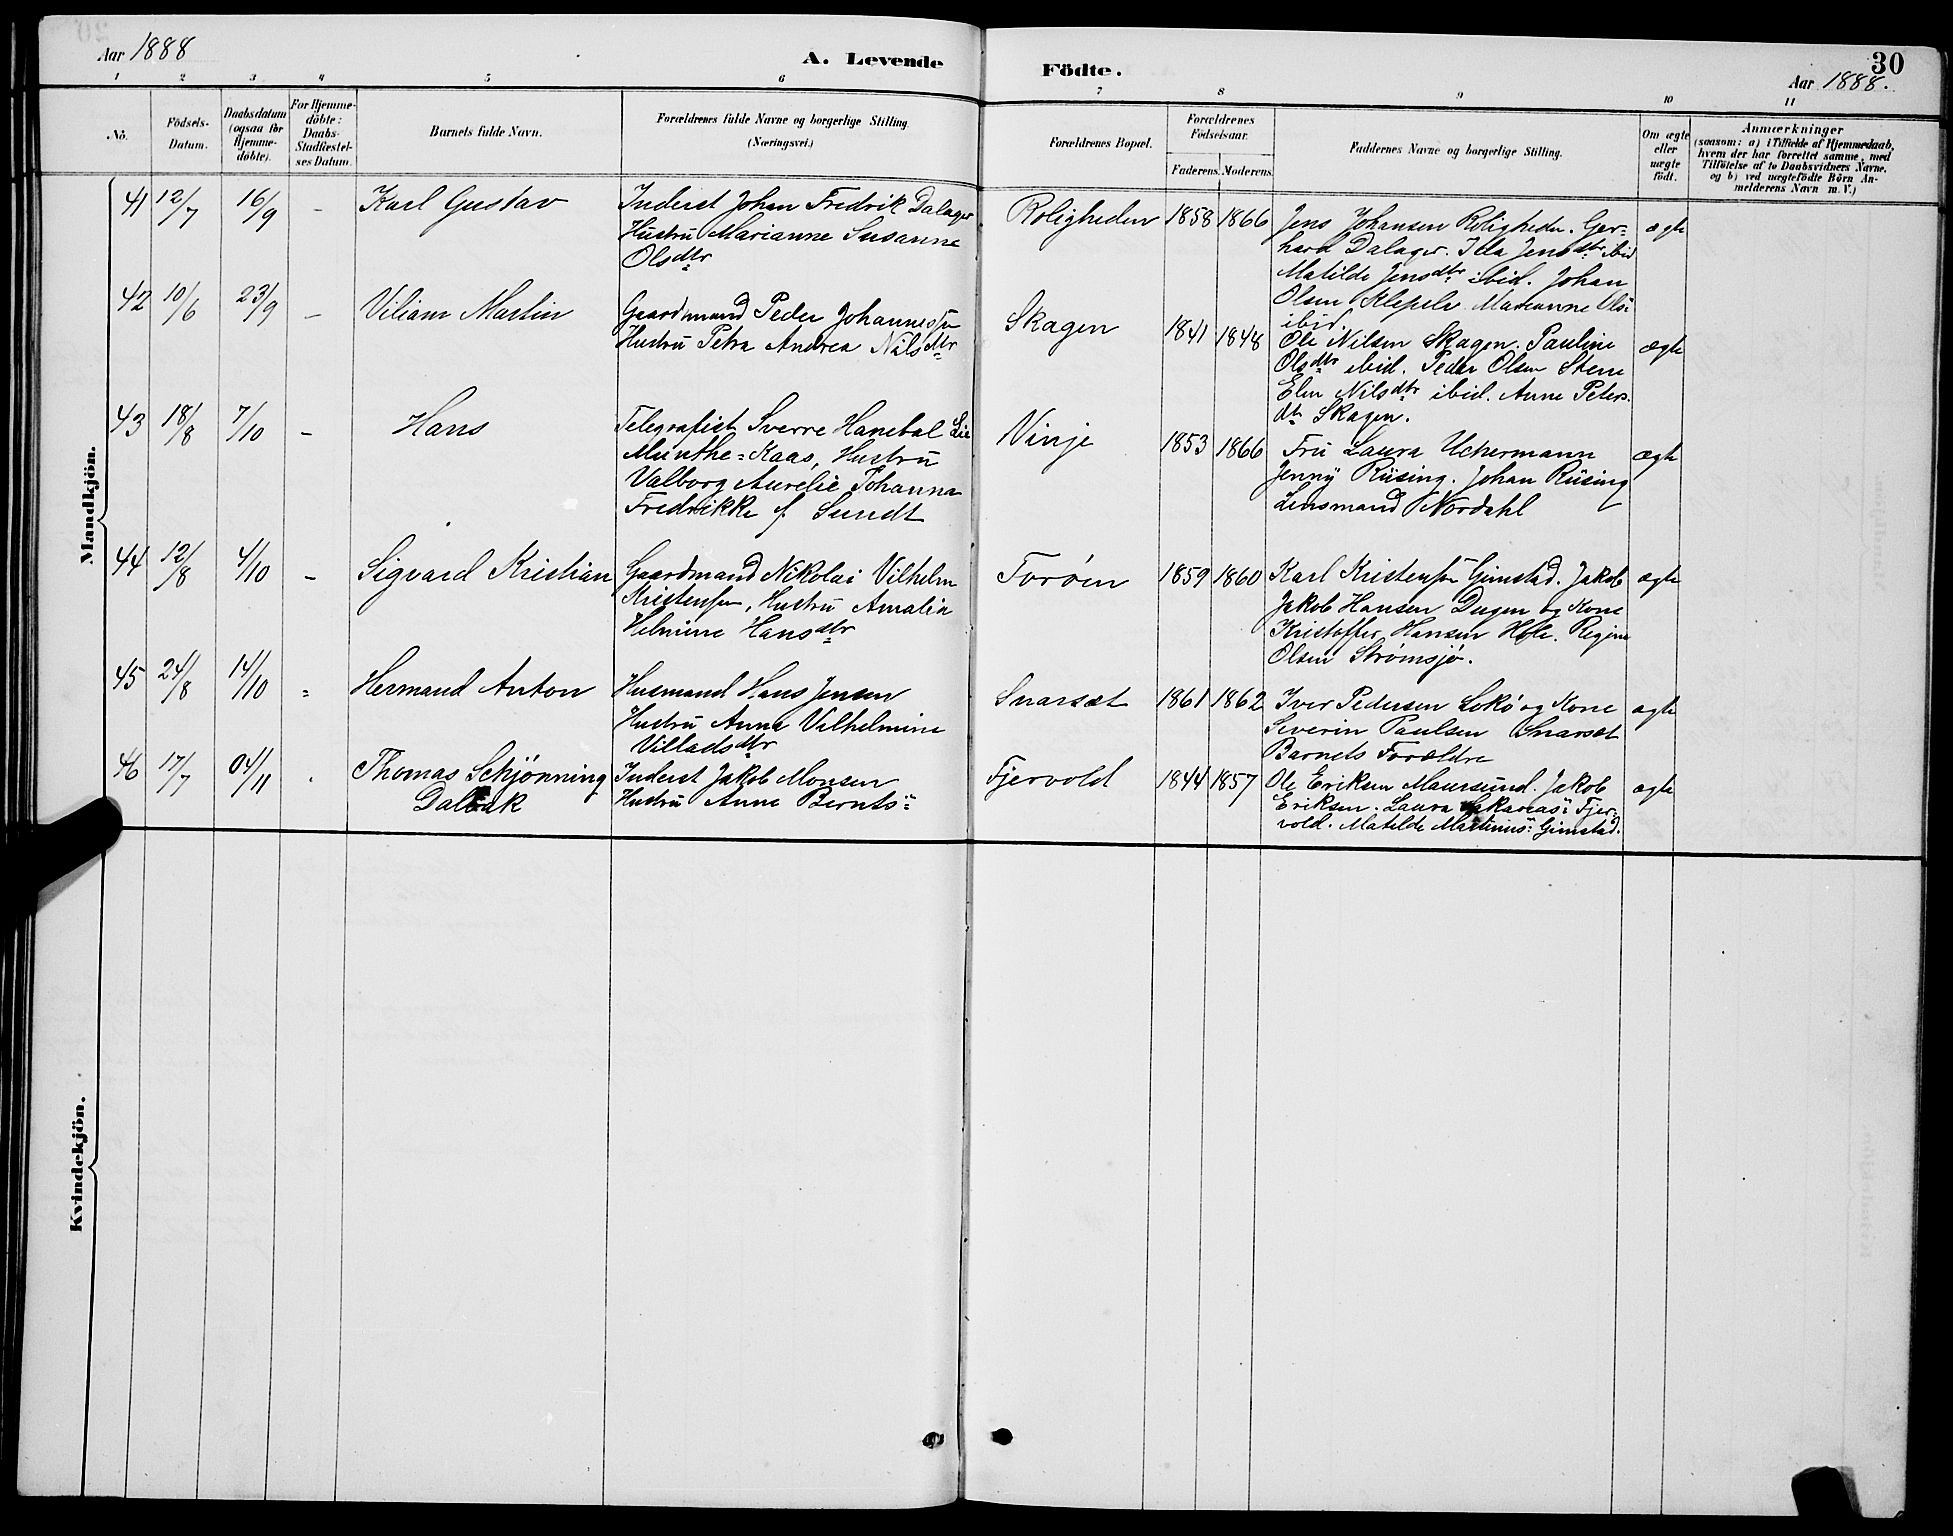 Aar 1888
A. Levende
Födte.
30
Aar 1888.
1 2 3 4 5 6 7 8 9 10 11
No.
Födsels-
Datum.
Daabsdatum
(ogsaa for
Hjemme-
döbte).
For Hjemme-
döbte:
Daabs-
Stadfæstel-
ses Datum.
Barnets fulde Navn.
Forældrenes fulde Navne og borgerlige Stilling.
(Næringsvei.)
Forældrenes Bopæl.
Forældrenes
Födselsaar.
Faderens. Moderens.
Faddernes Navne og borgerlige Stilling.
Om ægte
eller
uægte
födt.
Anmærkninger
(saasom: a) i Tilfælde af Hjemmedaab,
hvem der har forrettet samme, med
Tilföielse af to Daabsvidners Navne.
og b) ved uægtefödte Börn An-
melderens Navn m. V.)
Mandkjön.
41 12/7 16/9 – Karl Gustav
Inderst Johan Fredrik Dalager
Hustru Marianne Susanne
Olsdtr
Roligheden 1858 1866
Jens Johansen Roligheden. Ger-
hard Dalager. Ida Jensdtr ibid
Matilde Jensdtr ibid. Johan
Olsen Klepele Marianne Ols:
ibid.
ægte
42 10/6 23/9 – Viliam Martin
Gaardmand Peder Johannessen
Hustru Petra Andrea Nilsdtr
Skagen 1841 1848
Ole Nilsen Skagen. Pauline
Olsdtr ibid. Peder Olsen Stene
Elen Nilsdtr ibid. Anne Peters-
dtr Skagen.
ægte
43 18/8 7/10 – Hans
Telegrafist Sverre Hanebal Lie
Munthe-Kaas, Hustru
Valborg Aurelie Johanna
Fredrikke f. Sundt
Vinje 1853 1866
Fru Laura Uchermann
Jenny Rüsing. Johan Rüsing
Lensmand Nordahl
ægte
44 12/8 4/10 – Sigvard Kristian
Gaardmand Nikolai Vilhelm
Kristensen, Hustru Amalia
Helmine Hansdtr
Forøen 1859 1860
Karl Kristensen Gimstad. Jakob
Jakob Hansen Degen og Kone
Kristoffer Hansen Hole. Regine
Olsen Strømsjø.
ægte
45 24/8 14/10 = Hermand Anton
Husmand Hans Jensen
Hustru Anna Vilhelmine
Villadsdtr
Snarset 1861 1862
Iver Pedersen Lokø og Kone
Severin Paulsen Snarset
Barnets Forældre
ægte
46 17/7 04/11 . Thomas Schjønning
Dalbak
Inderst Jakob Monsen
Hustru Anne Bernts:
Fjervold 1844 1857
Ole Eriksen Maursund. Jakob
Eriksen. Laura Sakarias: Fjer-
vold. Matilde Martinus: Gimstad.
ægte
Kvindekjön.